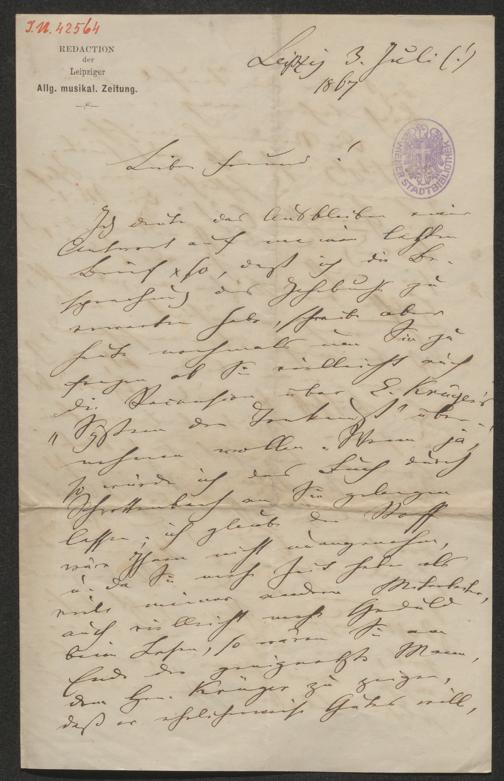 J.N. 42564
REDACTION
der
Leipziger
Allg. musikal. Zeitung.
Leipzig 3. Juli (!)
1867
WIENER STADTBIBLIOTHEK
Lieber Freund!
Ich deute das Ausbleiben einer
Antwort auf meinen letzten
Brief so, daß ich die Be-
sprechung des Jahrbuchs zu
erwarten habe, schreibe aber
heute nochmals um Sie zu
fragen ob Sie vielleicht auch
die Recension über E. Krüger's
"System der Tonkunst" über-
nehmen wollen. Wenn ja,
so würde ich das Buch durch
Schrottenbach an Sie gelangen
lassen; ich glaube der Stoff
wäre Ihnen nicht unangenehm,
u. da Sie mehr Zeit haben als
viele meiner andern Mitarbeiter,
auch vielleicht mehr Geduld
beim Lesen, so wären Sie am
Ende der geeignetste Mann,
dem Hrn. Krüger zu zeigen,
daß er Gutes will,